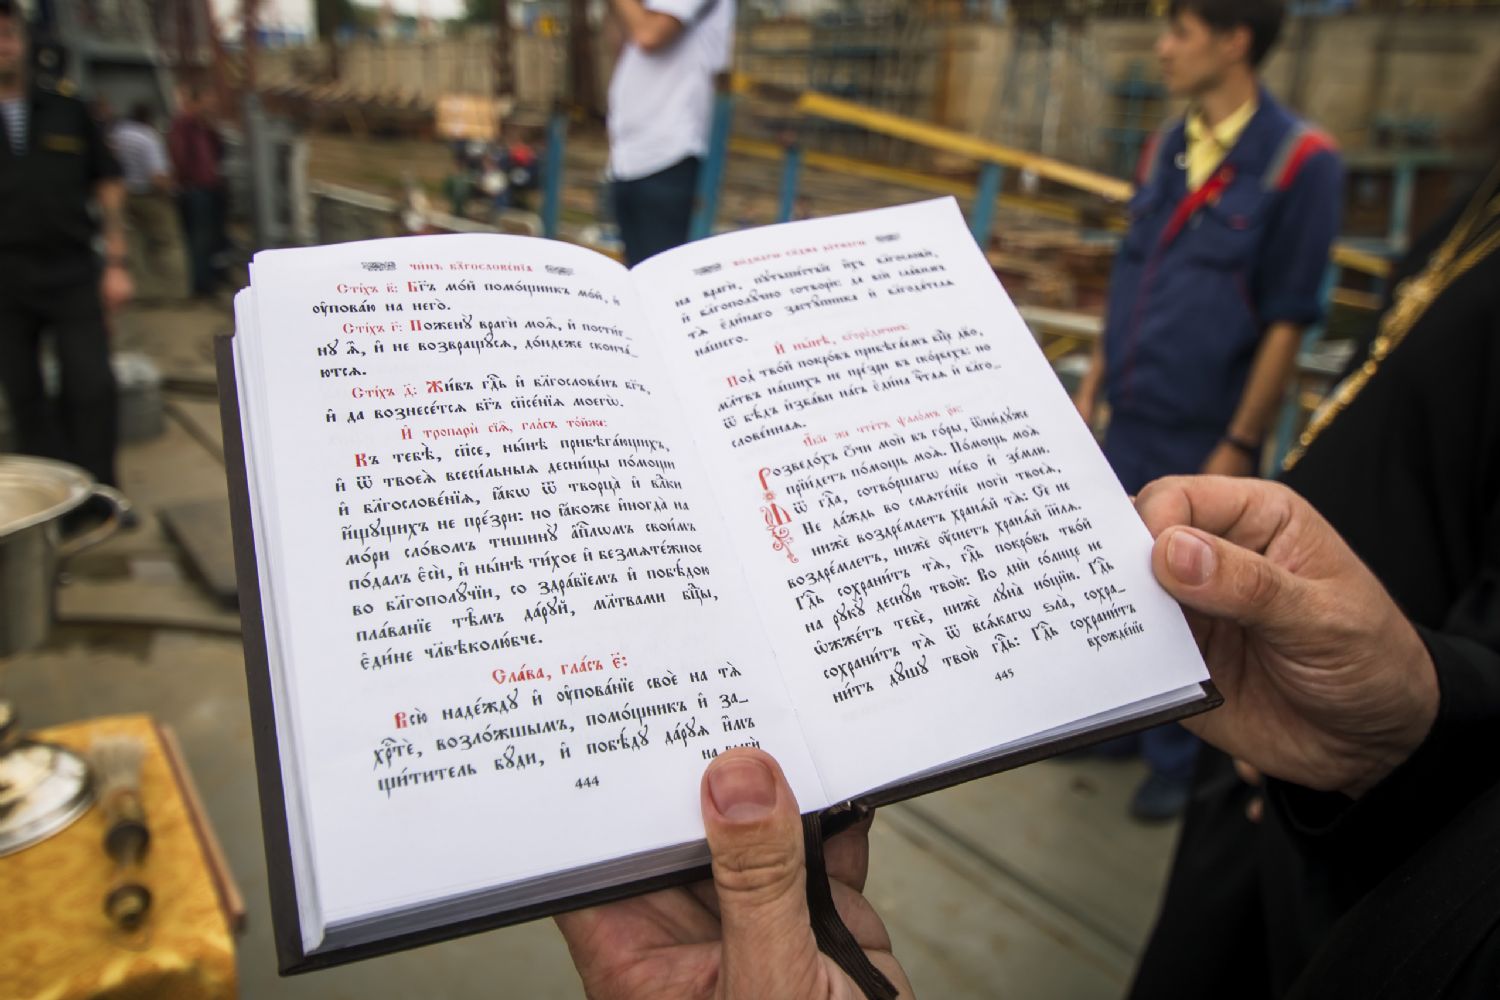 чи́нъ бл҃гослове́нїѧ
Сті́хъ в҃: Бг҃ъ мо́й помо́щникъ мо́й, и҆
ᲂу҆пова́ю на него̀.
Сті́хъ г҃: Пожену̀ врагѝ моѧ̑, и҆ пости́г_
ну ѧ҆̀, и҆ не возвращу́сѧ, до́ндеже сконча́_
ютсѧ.
Сті́хъ д҃: Жи́въ гдⷭ҇ь и҆ бл҃гослове́нъ бг҃ъ,
и҆ да вознесе́тсѧ бг҃ъ сп҃се́нїѧ моегѡ̀.
И҆ тропарѝ сїѧ̑, гла́съ то́йже:
Къ тебѣ̀, сп҃се, ны́нѣ прибѣга́ющихъ,
и҆ ѿ твоеѧ̀ всеси́льныѧ десни́цы по́мощи
и҆ бл҃гослове́нїѧ, ꙗ҆́кѡ ѿ творца̀ и҆ влⷣки
и҆́щущихъ не пре́зри: но ꙗ҆́коже и҆ногда̀ на
мо́ри сло́вомъ тишинꙋ̀ а҆пⷭ҇лѡмъ свои̑мъ
по́далъ є҆сѝ, и҆ ны́нѣ ти́хое и҆ безмате́жное
во бл҃гополꙋ́чїи, со здра́вїемъ и҆ побѣ́дою
пла́ванїе тѣ̑мъ да́рꙋй, мл҃твами бцⷣы,
є҆ди́не чл҃вѣколю́бче.
Сла́ва, гла́съ є҃:
Всю̀ наде́ждꙋ и҆ ᲂу҆пова́нїе своѐ на тѧ̀
хрⷭ҇тѐ, возло́жшымъ, помо́щникъ и҆ за_
щи́титель бꙋ́ди, и҆ побѣ́дꙋ да́рꙋѧ и҆̀мъ
444
на врагѝ
во́днагѡ сꙋ́дна ра́тнагѡ
на врагѝ, пꙋтьше́ствїи и҆́хъ бл҃гословѝ,
и҆ бл҃гополꙋ́чно сотворѝ: да всѝ сла́вѧтъ
тѧ̀ є҆ди́наго застꙋ́пника и҆ бл҃года́телѧ
на́шего.
И҆ ны́нѣ, бг҃оро́диченъ:
Под̾ тво́й покро́въ прибѣга́емъ бцⷣе дв҃о,
мл҃твъ на́шихъ не пре́зри въ ско́рбехъ: но
ѿ бѣ́дъ и҆зба́ви на́съ є҆ди́на чⷭ҇таѧ и҆ бл҃го_
слове́ннаѧ.
Та́же чте́тъ ѱало́мъ рк҃:
Возведо́хъ ѻ҆́чи моѝ въ го́ры, ѿню́дꙋже
прїи́детъ по́мощь моѧ̀. По́мощь моѧ̀
ѿ гдⷭ҇а, сотво́ршагѡ не́бо и҆ зе́млю.
Не да́ждь во смѧте́нїе ногѝ твоеѧ̀,
нижѐ воздре́млетъ хранѧ́й тѧ̀: Сѐ не
воздре́млетъ, нижѐ ᲂу҆́снетъ хранѧ́й і҆и҃лѧ.
Гдⷭ҇ь сохрани́тъ тѧ̀, гдⷭ҇ь покро́въ тво́й
на рꙋ́кꙋ деснꙋ́ю твою̀: Во днѝ со́лнце не
ѡ҆жже́тъ тебѐ, нижѐ лꙋна̀ но́щїю. Гдⷭ҇ь
сохрани́тъ тѧ̀ ѿ всѧ́кагѡ ѕла̀, сохра_
ни́тъ дꙋ́шꙋ твою̀ гдⷭ҇ь: Гдⷭ҇ь сохрани́тъ
445
вхожде́нїе